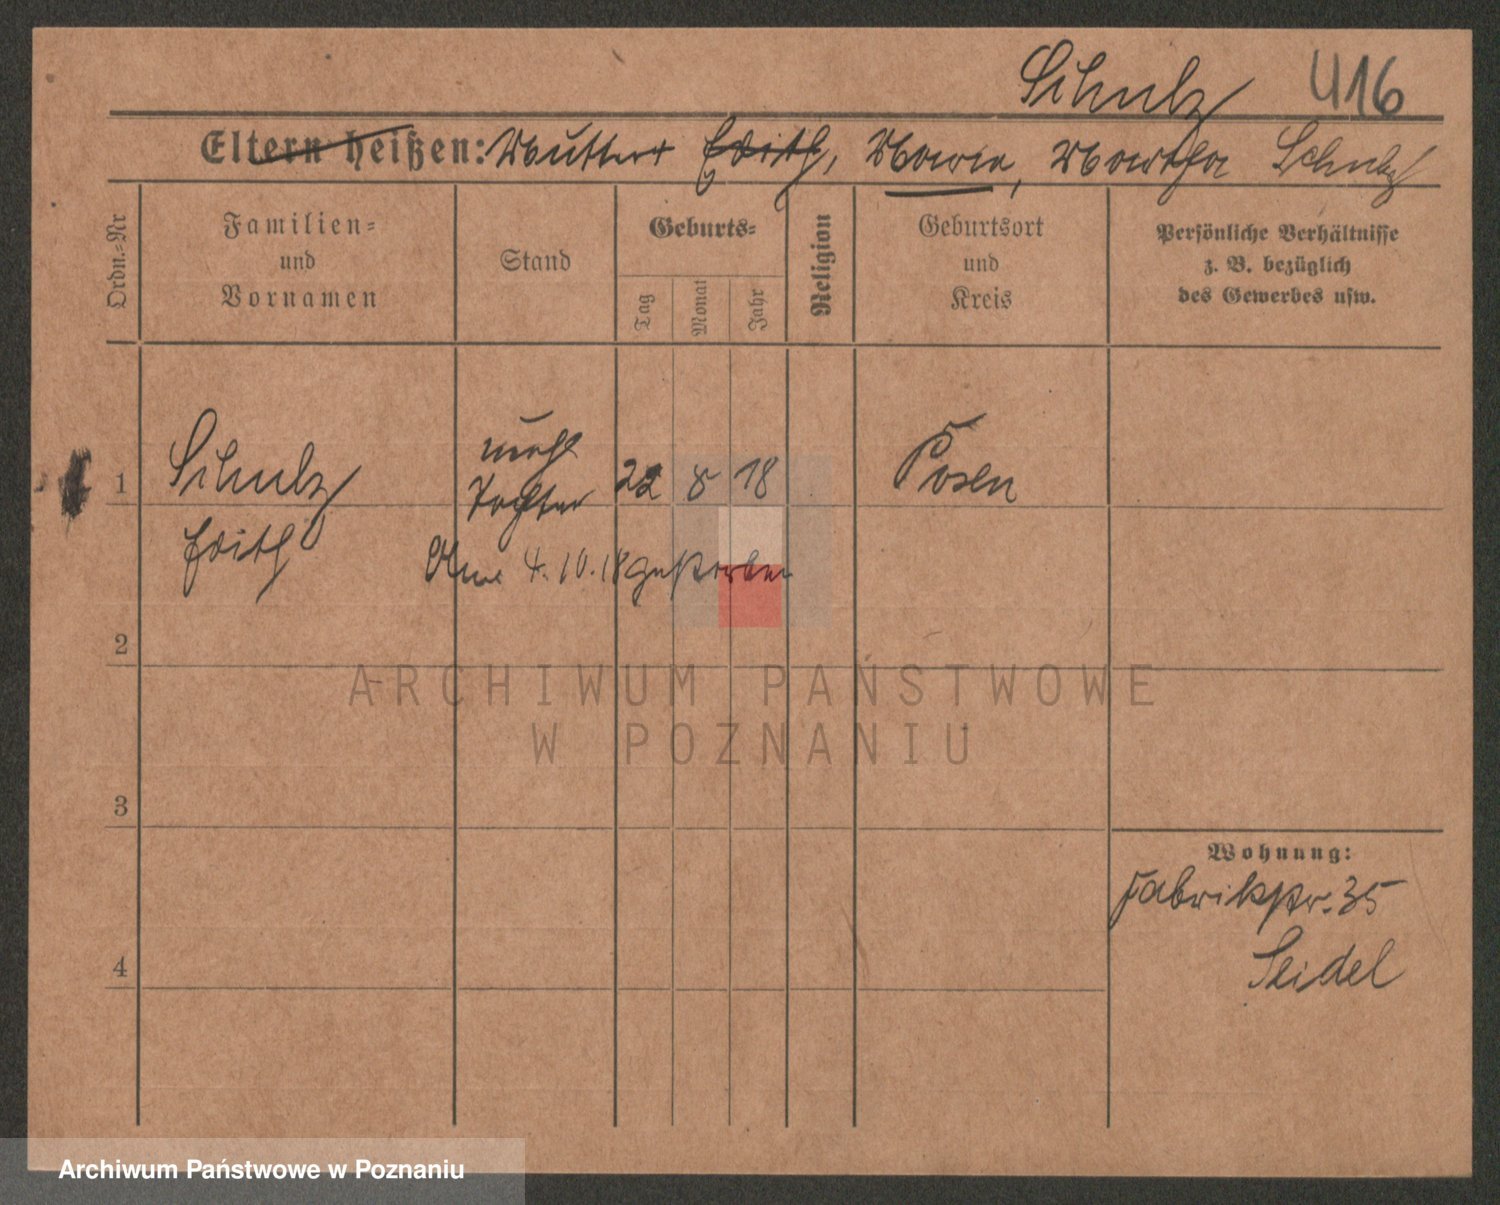 Schulz 416
Eltern heißen: Mutter Edith, Maria, Martha Schulz
Ordn.-Nr
Familien-
und
Vornamen
Stand
Geburts-
Tag
Monat
Jahr
Religion
Geburtsort
und
Kreis
Persönliche Verhältnisse
z. B. bezüglich
des Gewerbes usw.
1
Schulz
Edith
Tochter
22 8 18
Posen
Am 4.10.18 gestorben
2
ARCHIWUM PAŃSTWOWE
W POZNANIU
3
4
Wohnung:
Fabrikstr. 35
Seidel
Archiwum Państwowe w Poznaniu